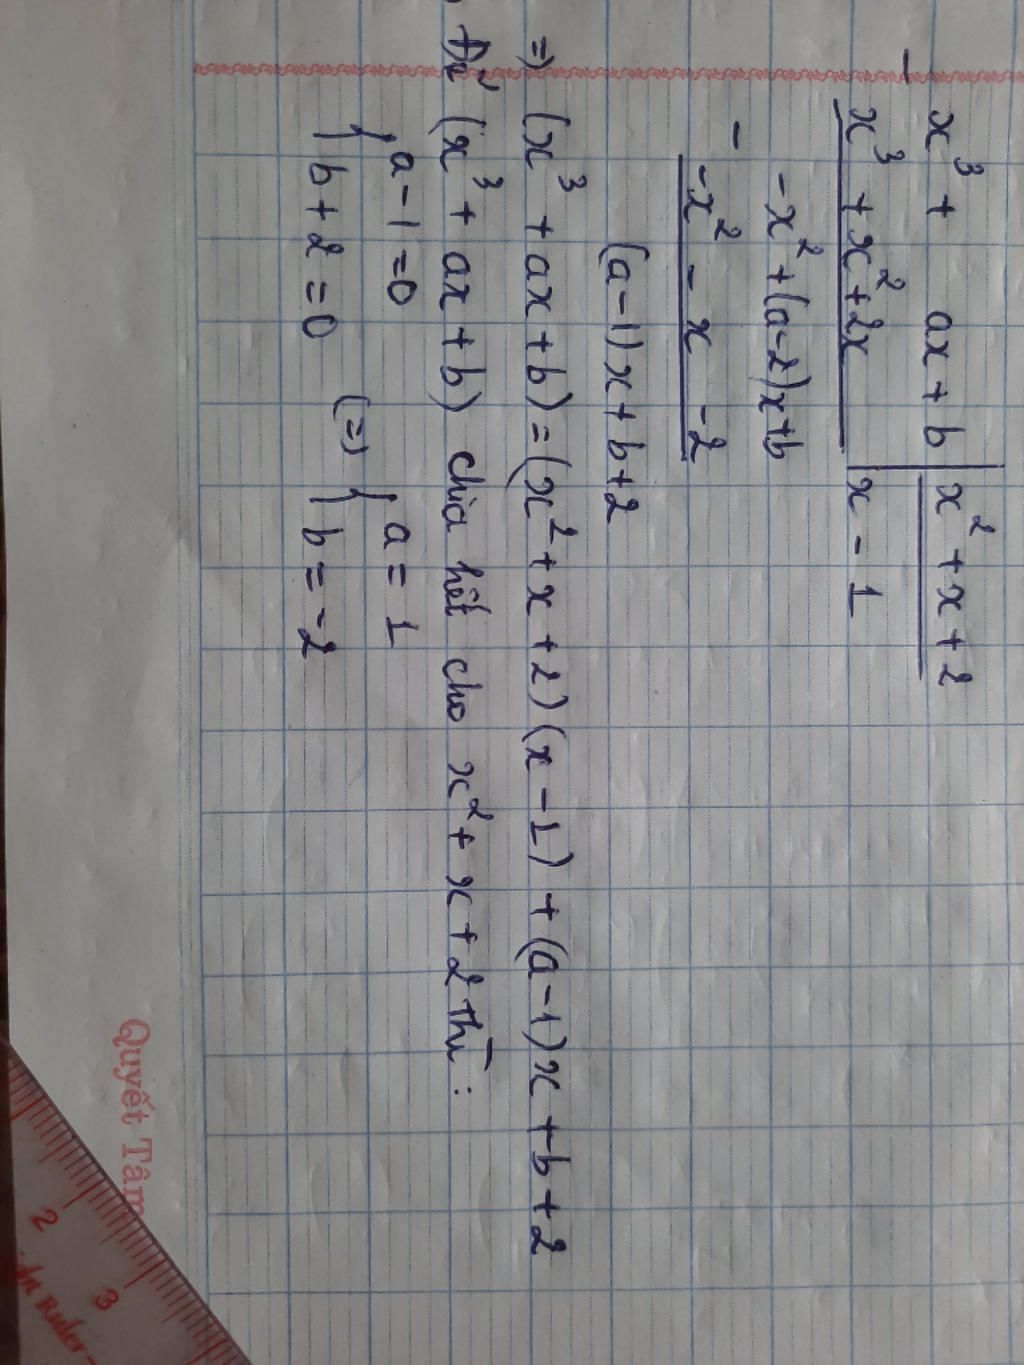 x³ + ax + b | x² + x + 2
x³ + x² + 2x | x - 1
- x² + (a - 2)x + b
- x² - x - 2
(a - 1)x + b + 2
=> (x³ + ax + b) = (x² + x + 2)(x - 1) + (a - 1)x + b + 2
Để (x³ + ax + b) chia hết cho x² + x + 2 thì :
{ a - 1 = 0 (=) { a = 1
{ b + 2 = 0 { b = -2
Quyết Tâm
2 3
Ruler